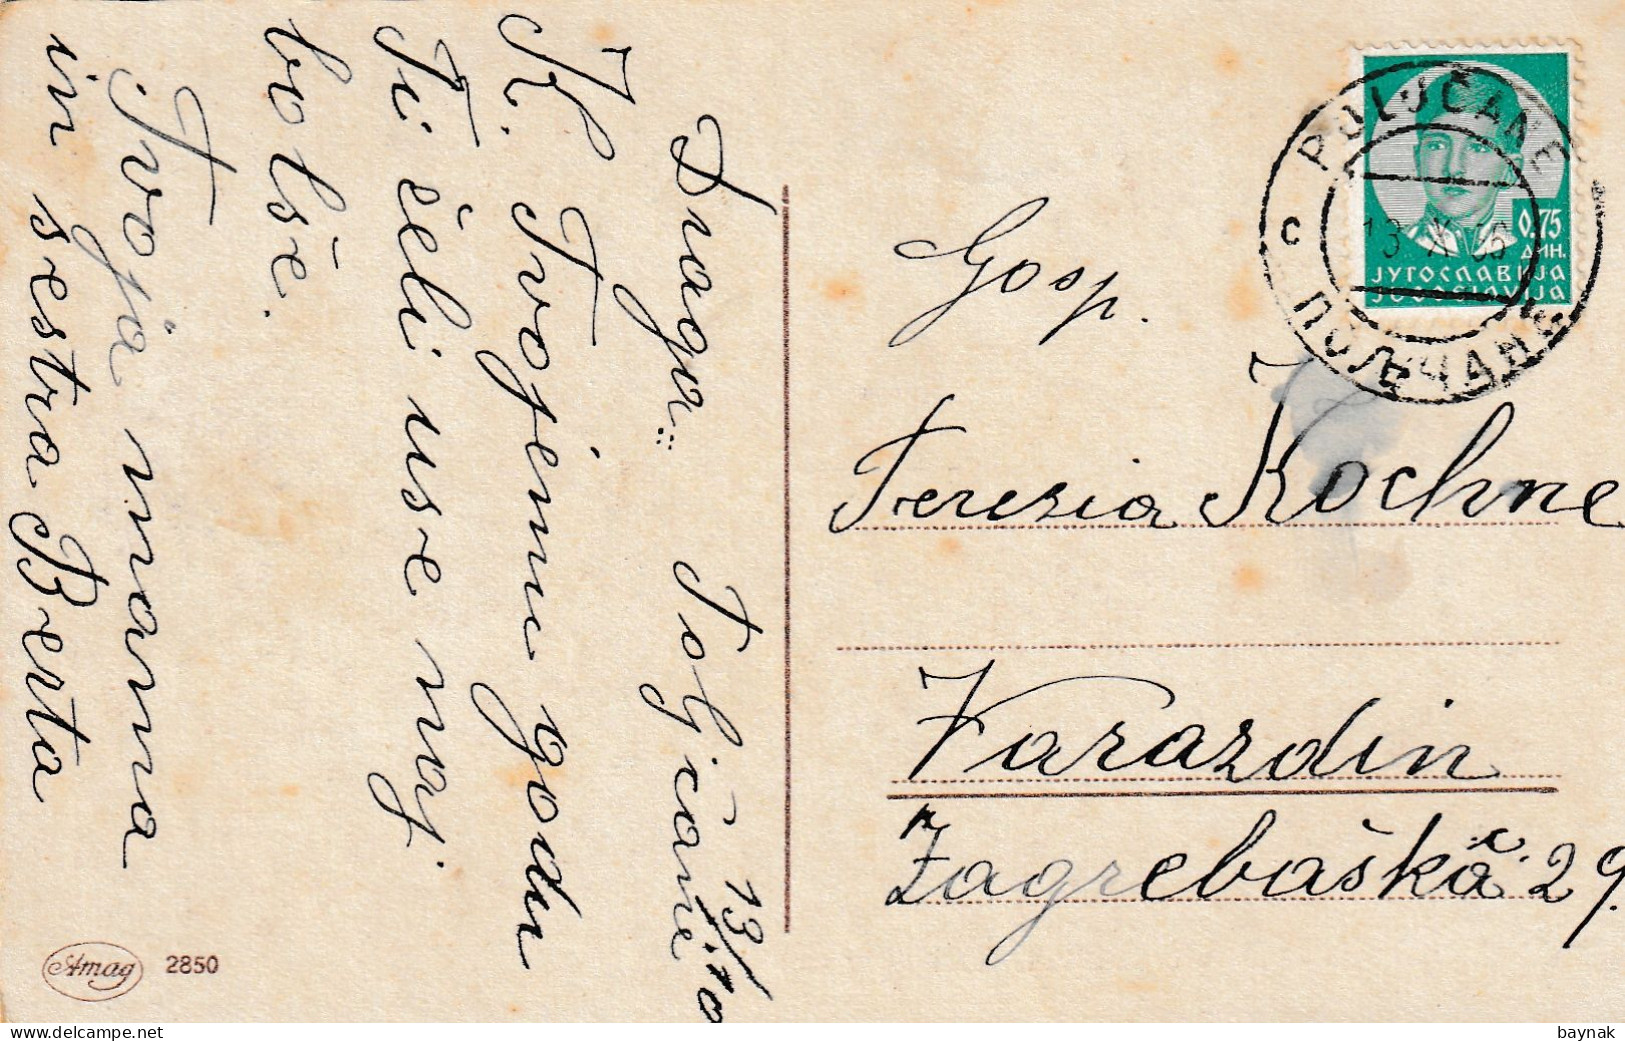 Draga:: Poljčane 13/10
K. Tvojemu godu
Ti želi use naj
bolše.
Tvoja mama
in sestra Berta
Amag 2850
Gosp.
Terezia Kochne
Varazdin
Zagrebaška c. 29.
POLJČANE
ПОЉЧАНЕ
c
13 X 36
0.75
ДИН.
ЈУГОСЛАВИЈА
JUGOSLAVIJA
www.delcampe.net
baynak